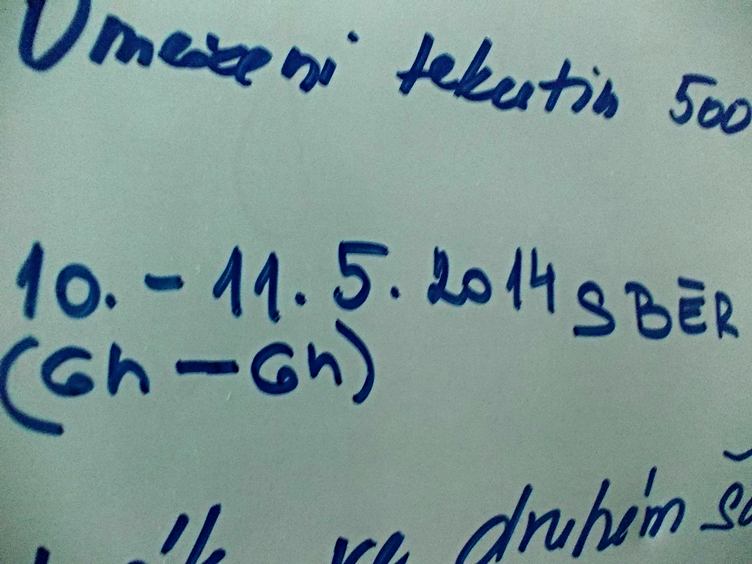 Omezeni tekutin 500
10. - 11. 5. 2014 SBĚR
(6h - 6h)
druhém